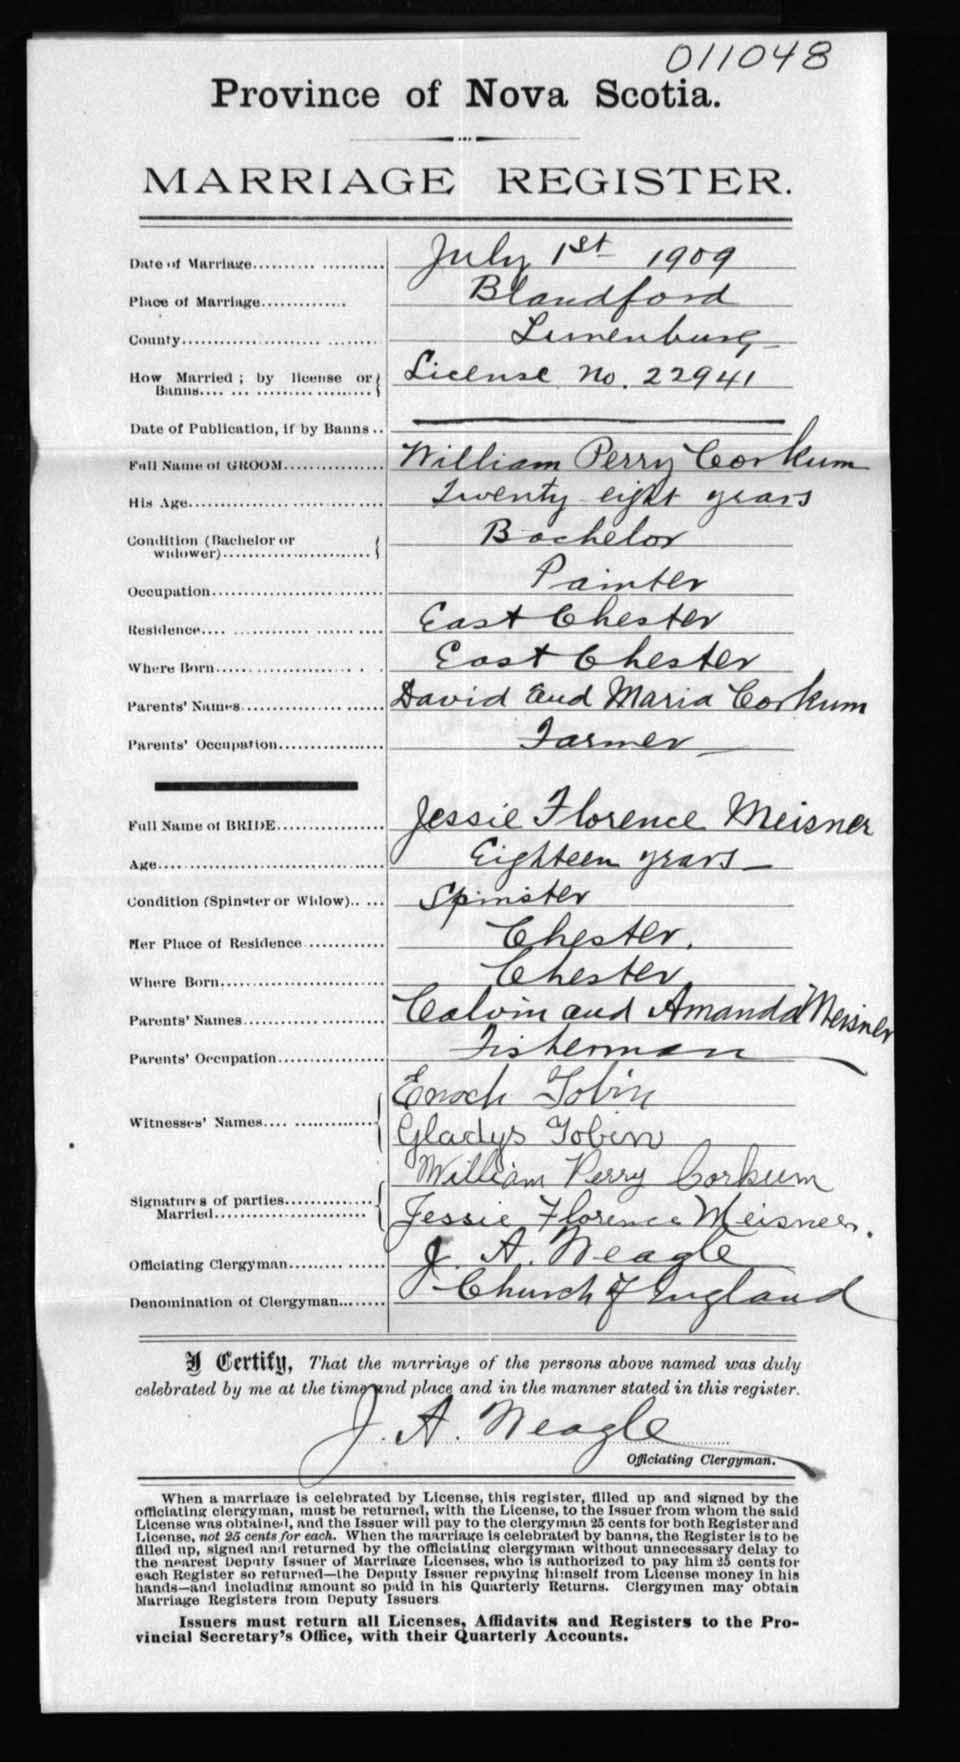 011048
Province of Nova Scotia.
MARRIAGE REGISTER.
Date of Marriage.................... July 1st 1909
Place of Marriage............. Blandford
County.............................. Lunenburg
How Married; by license or License No. 22941
Banns..............................
Date of Publication, if by Banns..
Full Name of GROOM............... William Perry Corkum
His Age.............................. Twenty eight years
Condition (Bachelor or Bachelor
widower)........................
Occupation.......................... Painter
Residence........................... East Chester
Where Born......................... East Chester
Parents' Names..................... David and Maria Corkum
Parents' Occupation................ Farmer
Full Name of BRIDE................ Jessie Florence Meisner
Age.................................. Eighteen years
Condition (Spinster or Widow)..... Spinster
Her Place of Residence............ Chester.
Where Born......................... Chester
Parents' Names..................... Calvin and Amanda Meisner
Parents' Occupation................ Fisherman
Enoch Tobin
Witnesses' Names.................
Gladys Tobin
William Perry Corkum
Signatures of parties.............
Married........................ Jessie Florence Meisner.
Officiating Clergyman.............. J. A. Neagle
Denomination of Clergyman......... Church of England
I Certify, That the marriage of the persons above named was duly
celebrated by me at the time and place and in the manner stated in this register.
J. A. Neagle
Officiating Clergyman.
When a marriage is celebrated by License, this register, filled up and signed by the
officiating clergyman, must be returned, with the License, to the Issuer from whom the said
License was obtained, and the Issuer will pay to the clergyman 25 cents for both Register and
License, not 25 cents for each. When the marriage is celebrated by banns, the Register is to be
filled up, signed and returned by the officiating clergyman without unnecessary delay to
the nearest Deputy Issuer of Marriage Licenses, who is authorized to pay him 25 cents for
each Register so returned—the Deputy Issuer repaying himself from License money in his
hands—and including amount so paid in his Quarterly Returns. Clergymen may obtain
Marriage Registers from Deputy Issuers
Issuers must return all Licenses, Affidavits and Registers to the Pro-
vincial Secretary's Office, with their Quarterly Accounts.